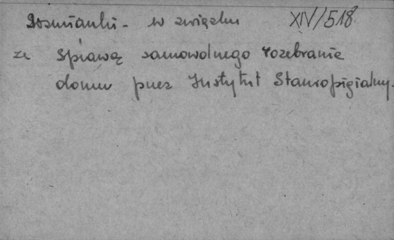 Wzmianki - w związku XIV/518.
ze sprawą samowolnego rozebranie
domu przez Instytut Stauropigialny.